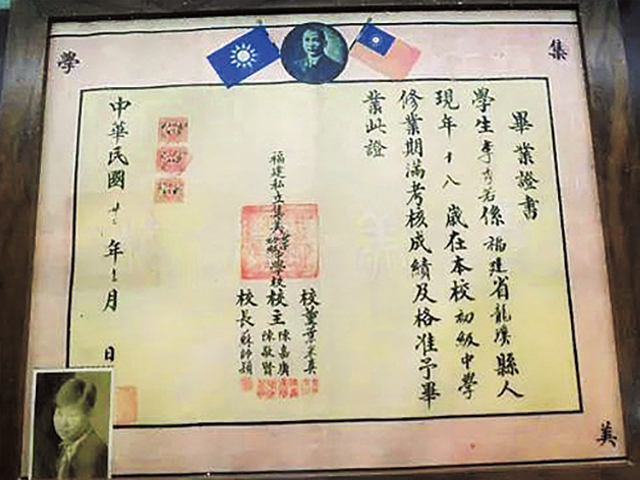 集
美
學
畢業證書
學生李係福建省龍溪縣人
現年十八歲在本校初級中學
修業期滿考核成績及格准予畢
業此證
校董葉采真
校主陳嘉庚
陳敬賢
校長蘇師穎
福建私立集美中學校
中華民國年月日